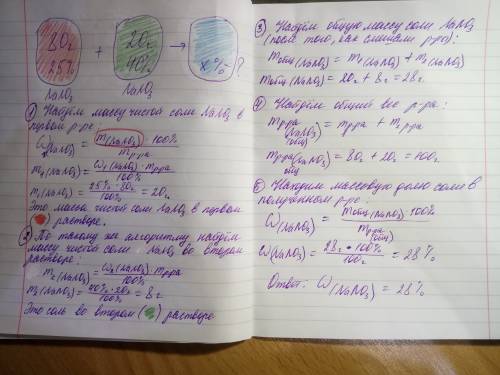 80г
25%
+
20г
40%
→
x%
?
NaNO₃
NaNO₃
① Найдём массу чистой соли NaNO₃ в
первом р-ре
ω(NaNO₃) = m₁(NaNO₃) · 100% / mр-ра
m₁(NaNO₃) = ω₁(NaNO₃) · mр-ра / 100%
m₁(NaNO₃) = 25% · 80г / 100% = 20г
Это масса чистой соли NaNO₃ в первом
( ) растворе.
② По такому же алгоритму найдём
массу чистой соли NaNO₃ во втором
растворе:
m₂(NaNO₃) = ω₂(NaNO₃) · mр-ра / 100%
m₂(NaNO₃) = 40% · 20г / 100% = 8г
Это соль во втором ( ) растворе
③ Найдём общую массу соли NaNO₃
(после того, как смешали р-ры):
mобщ(NaNO₃) = m₁(NaNO₃) + m₂(NaNO₃)
mобщ(NaNO₃) = 20г + 8г = 28г
④ Найдём общий вес р-ра:
mр-ра(NaNO₃)(общ) = mр-ра + mр-ра
mр-ра(NaNO₃)общ = 80г + 20г = 100г
⑤ Находим массовую долю соли в
полученном р-ре:
ω(NaNO₃) = mобщ(NaNO₃) · 100% / mр-ра(общ)
ω(NaNO₃) = 28г · 100% / 100г = 28%
Ответ: ω(NaNO₃) = 28%